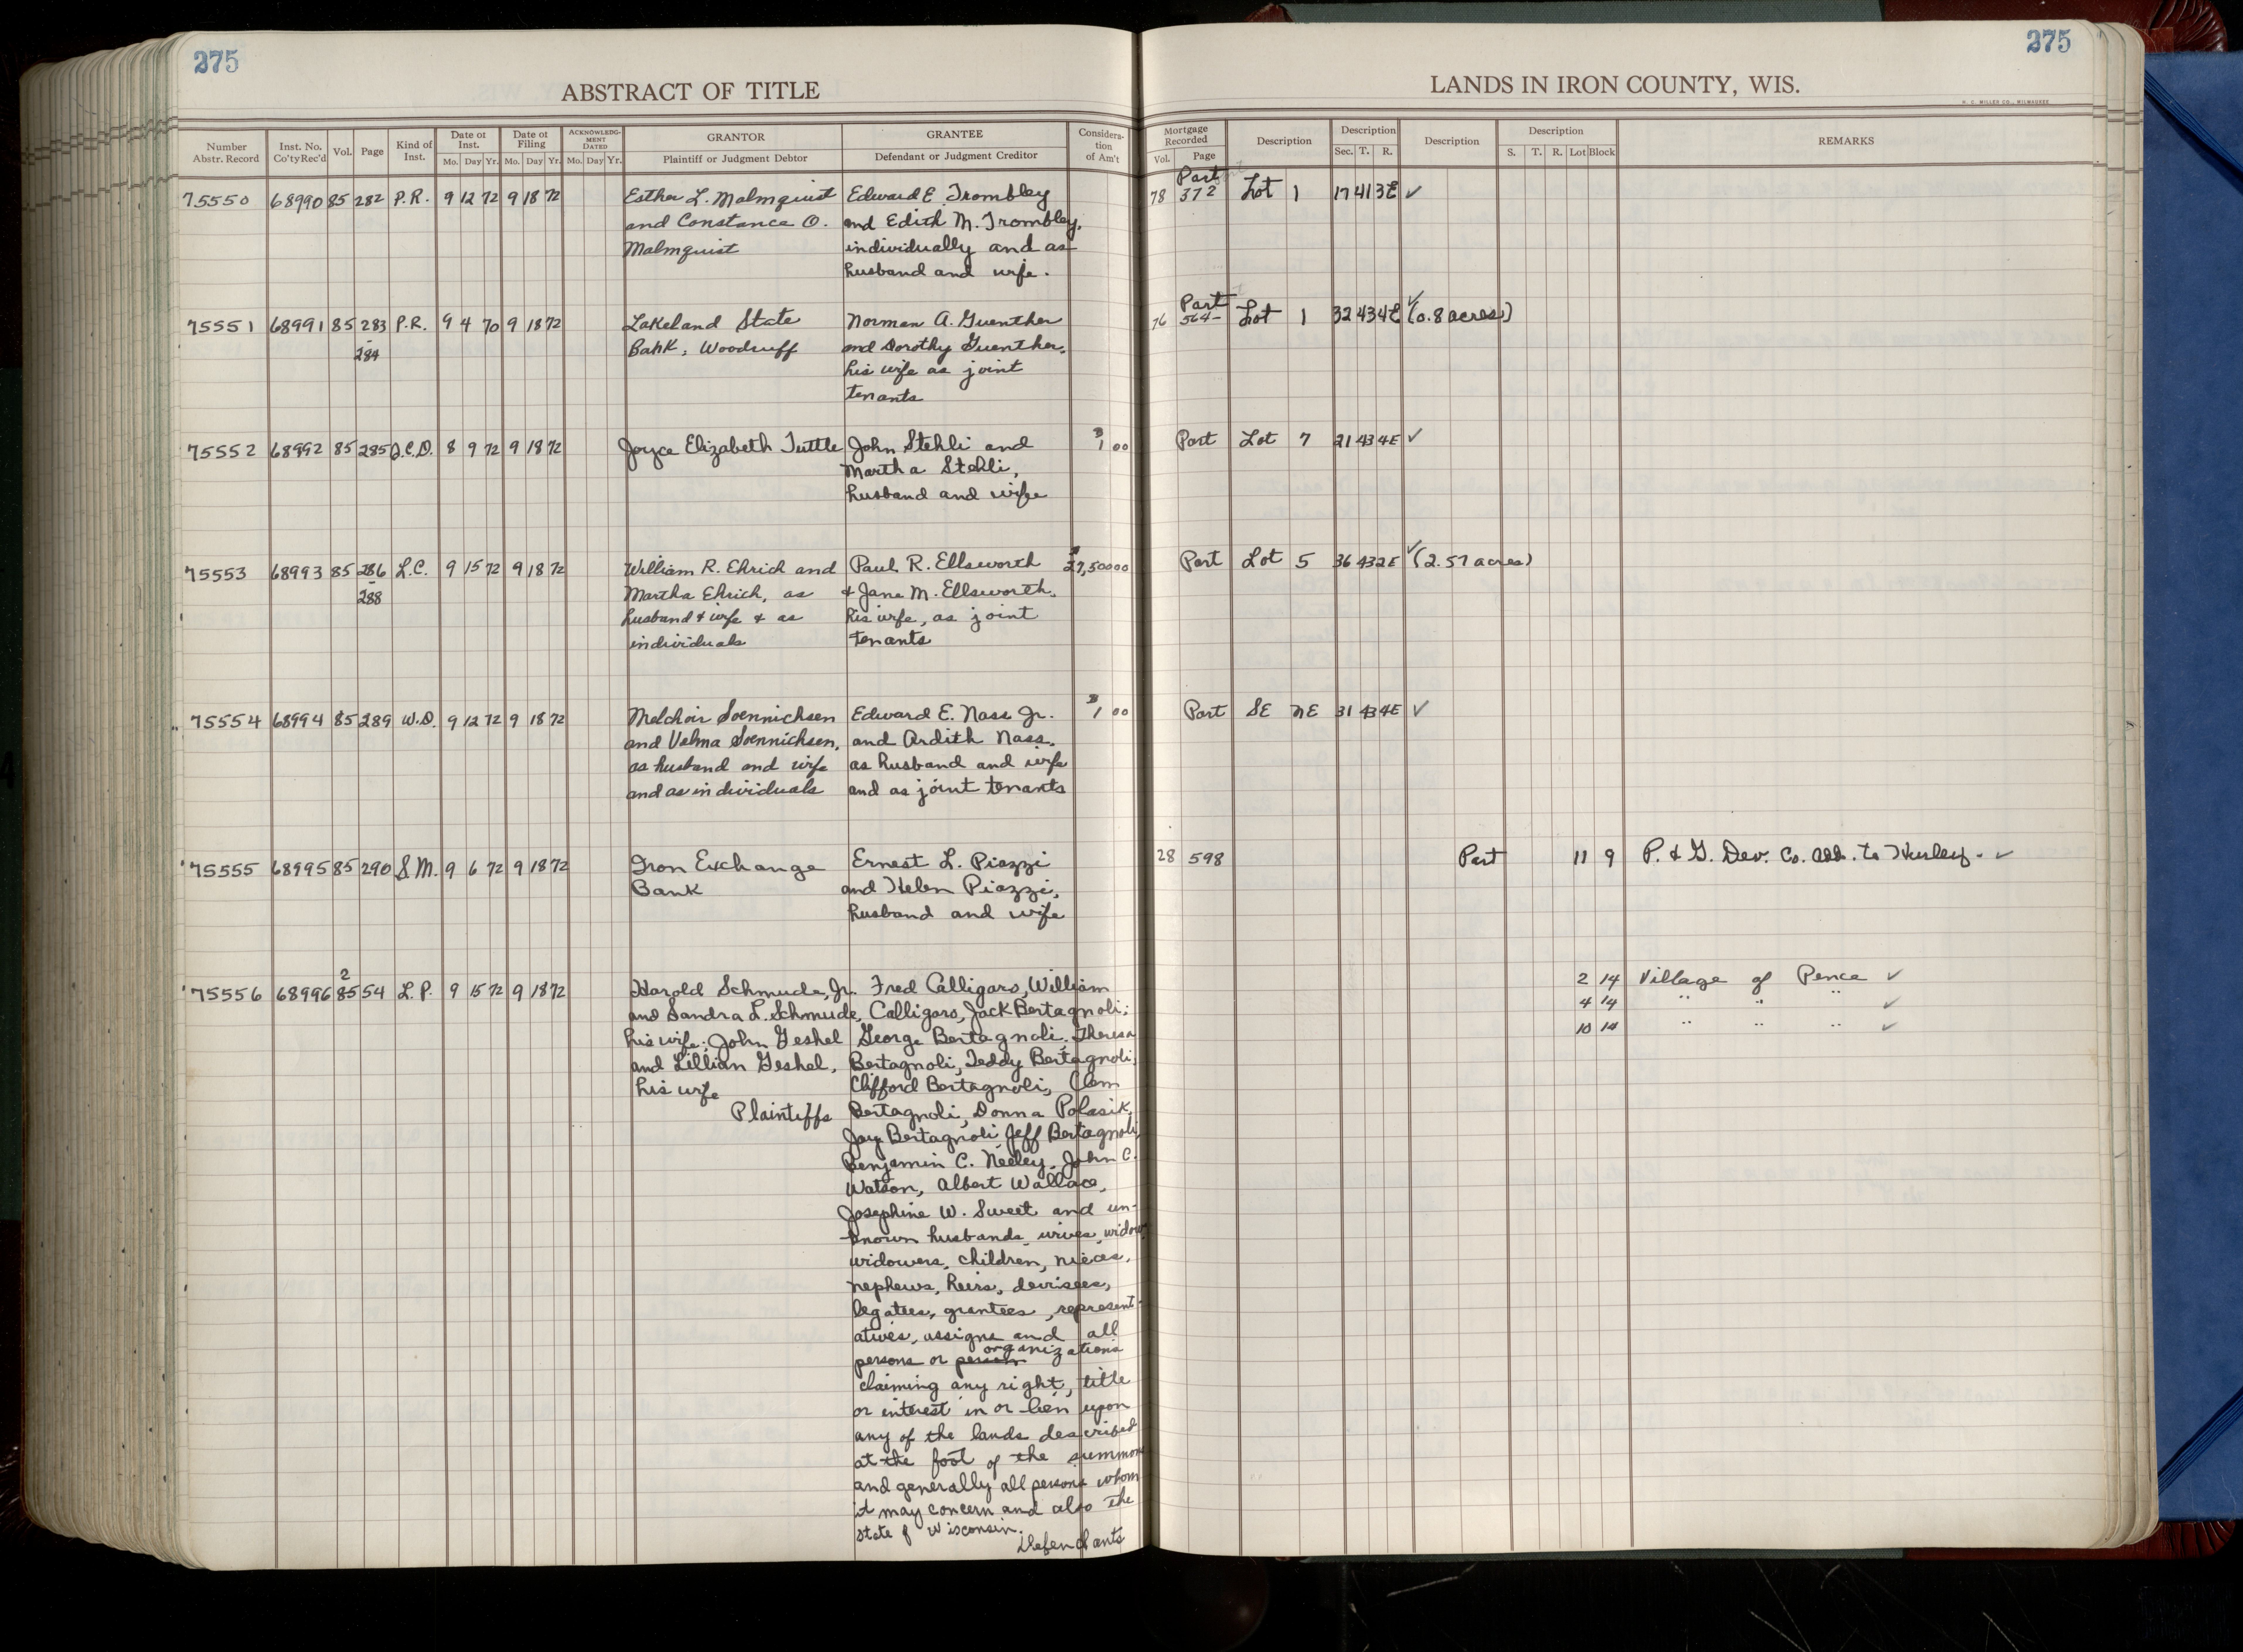 275
275
ABSTRACT OF TITLE
LANDS IN IRON COUNTY, WIS.
H. C. MILLER CO., MILWAUKEE
Number Abstr. Record
Inst. No. Co'ty Rec'd
Vol.
Page
Kind of Inst.
Date of Inst. Mo. Day Yr.
Date of Filing Mo. Day Yr.
ACKNOWLEDGMENT DATED Mo. Day Yr.
GRANTOR
Plaintiff or Judgment Debtor
GRANTEE
Defendant or Judgment Creditor
Consideration of Am't
Mortgage Recorded Vol. Page
Description
Description Sec. T. R.
Description
Description S. T. R. Lot Block
REMARKS
75550 68990 85 282 P.R. 9 12 72 9 18 72 Esther L. Malmquist Edward E. Trombley 78 372 Part Lot 1 17 41 3E ✓
and Constance O. and Edith M. Trombley,
Malmquist individually and as
husband and wife.
75551 68991 85 283 P.R. 9 4 70 9 18 72 Lakeland State Norman A. Guenther 76 564- Part Lot 1 32 43 4E ✓ (0.8 acres)
-284 Bank, Woodruff and Dorothy Guenther,
his wife as joint
tenants
75552 68992 85 285 Q.C.D. 8 9 72 9 18 72 Joyce Elizabeth Tuttle John Stehli and $1 00 Part Lot 7 21 43 4E ✓
Martha Stehli,
husband and wife
75553 68993 85 286 L.C. 9 15 72 9 18 72 William R. Ehrich and Paul R. Ellsworth $27,500 00 Part Lot 5 36 43 2E ✓ (2.57 acres)
-288 Martha Ehrich, as & Jane M. Ellsworth,
husband & wife & as his wife, as joint
individuals tenants
75554 68994 85 289 W.D. 9 12 72 9 18 72 Melchoir Soennichsen Edward E. Nass Jr. $1 00 Part SE NE 31 43 4E ✓
and Velma Soennichsen, and Ardith Nass,
as husband and wife as husband and wife
and as individuals and as joint tenants
75555 68995 85 290 S.M. 9 6 72 9 18 72 Iron Exchange Ernest L. Piazzi 28 598 Part 11 9 P. & G. Dev. Co. Add. to Hurley. ✓
Bank and Helen Piazzi,
husband and wife
75556 68996 2 85 54 L.P. 9 15 72 9 18 72 Harold Schmude, Jr. Fred Calligaro, William 2 14 Village of Pence ✓
and Sandra L. Schmude, Calligaro, Jack Bertagnoli; 4 14 " " " ✓
his wife; John Geshel George Bertagnoli, Theresa 10 14 " " " ✓
and Lillian Geshel, Bertagnoli, Teddy Bertagnoli,
his wife Clifford Bertagnoli, Clem
Plaintiffs Bertagnoli, Donna Polasik,
Bertagnoli, Jeff Bertagnoli,
Benjamin C. Neeley, John C.
Watson, Albert Wallace,
Josephine W. Sweet and un-
known husbands, wives, widows
widowers, children, nieces,
nephews, heirs, devisees,
legatees, grantees, represent-
atives, assigns and all
persons or person organizations
claiming any right, title
or interest in or lien upon
any of the lands described
at the foot of the summons
and generally all persons whom
it may concern and also the
State of Wisconsin.
Defendants